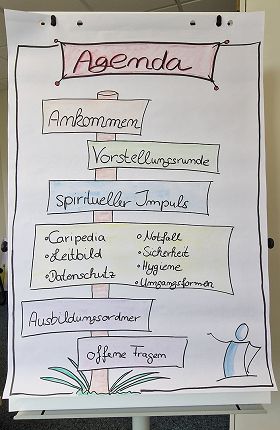 Agenda
Ankommen
Vorstellungsrunde
Spiritueller Impuls
• Caripedia
• Leitbild
• Datenschutz
• Notfall
• Sicherheit
• Hygiene
• Umgangsformen
Ausbildungsordner
offene Fragen